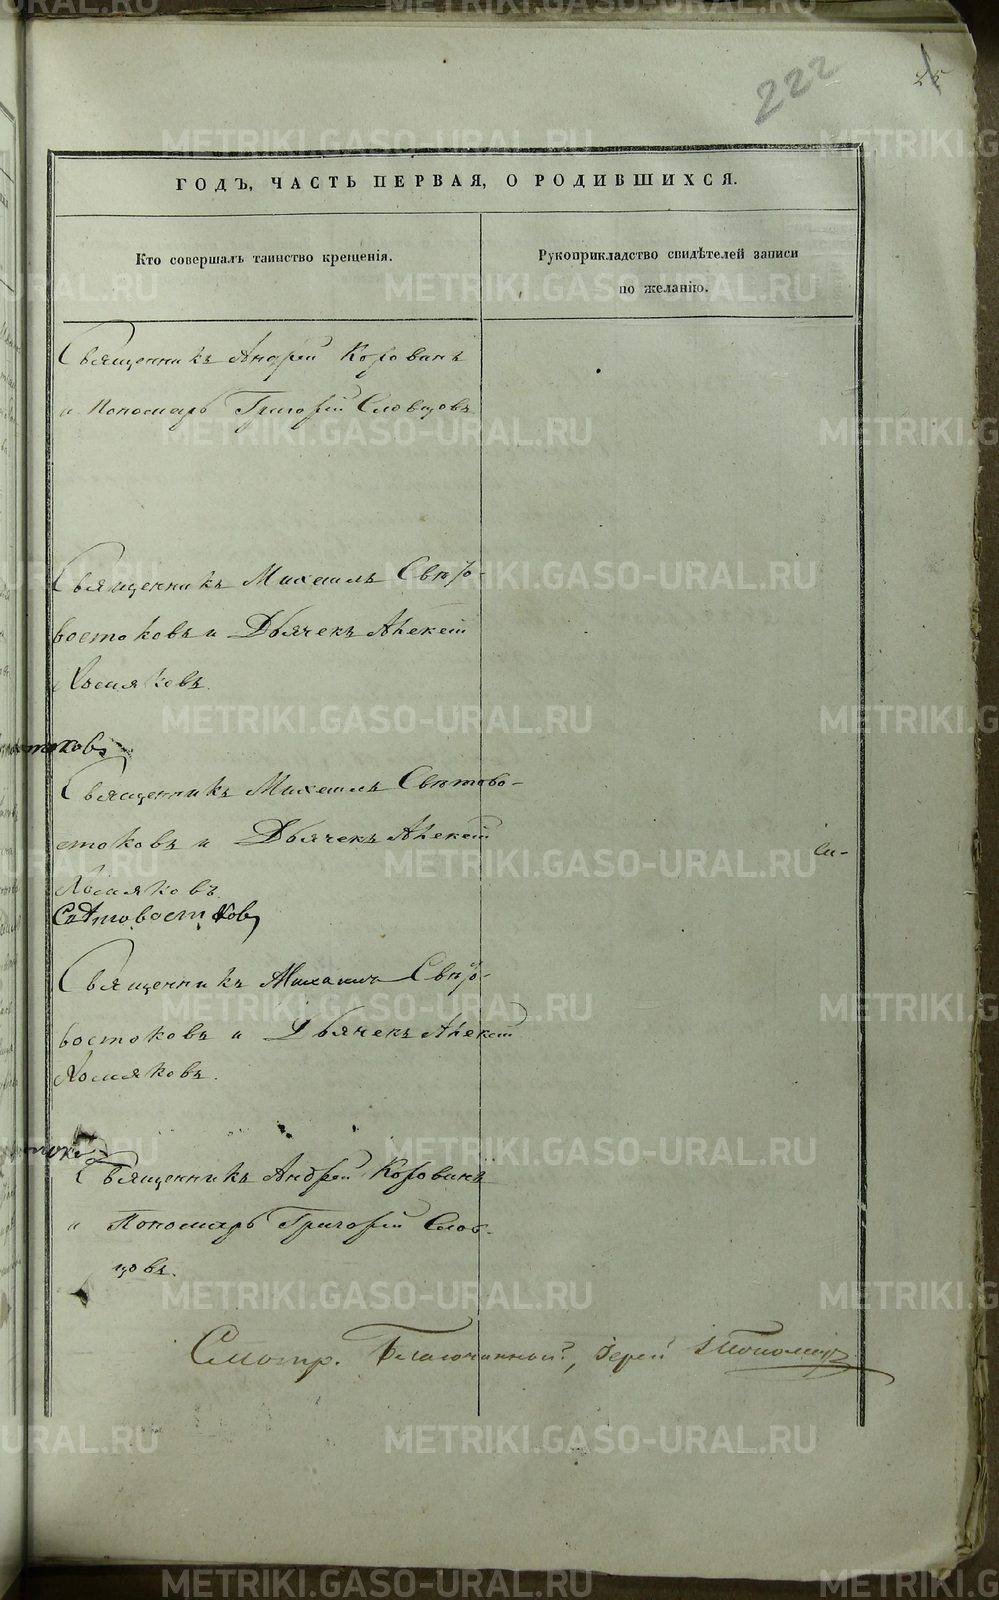 222
25
ГОДЪ, ЧАСТЬ ПЕРВАЯ, О РОДИВШИХСЯ.
Кто совершалъ таинство крещенія.
Рукоприкладство свидѣтелей записи
по желанію.
Священникъ Андрей Коровинъ
и Пономарь Григорій Словцовъ
Священникъ Михаилъ Свѣто-
востоковъ и Дьячекъ Алексѣй
Хомяковъ.
Священникъ Михаилъ Свѣтово-
стоковъ и Дьячекъ Алексѣй
Хомяковъ.
Священникъ Михаилъ Свѣто-
востоковъ и Дьячекъ Алексѣй
Хомяковъ.
Священникъ Андрей Коровинъ
и Пономарь Григорій Слов-
цовъ.
Смотр. Благочинный, Іерей
METRIKI.GASO-URAL.RU